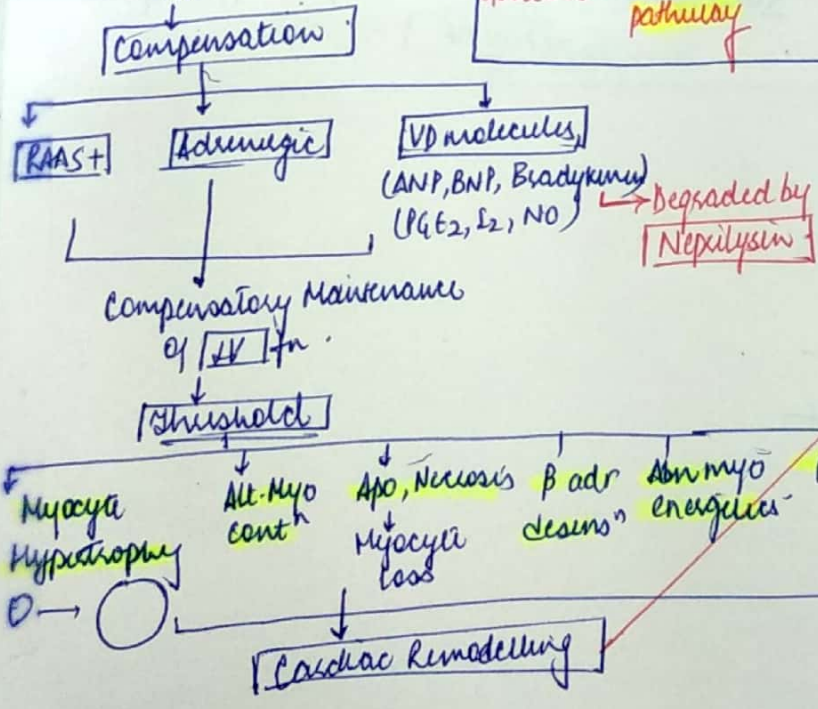 pathway
Compensation
RAAS+
Adrenergic
VD molecules
(ANP, BNP, Bradykinin)
(PGE2, I2, NO)
Degraded by
Neprilysin
Compensatory Maintenance
of LV fn.
Threshold
Myocyte
Hypertrophy
Alt. Myo
contⁿ
Apo, Necrosis
Myocyte
loss
β adr
desensⁿ
Abn myo
energetics
Cardiac Remodelling